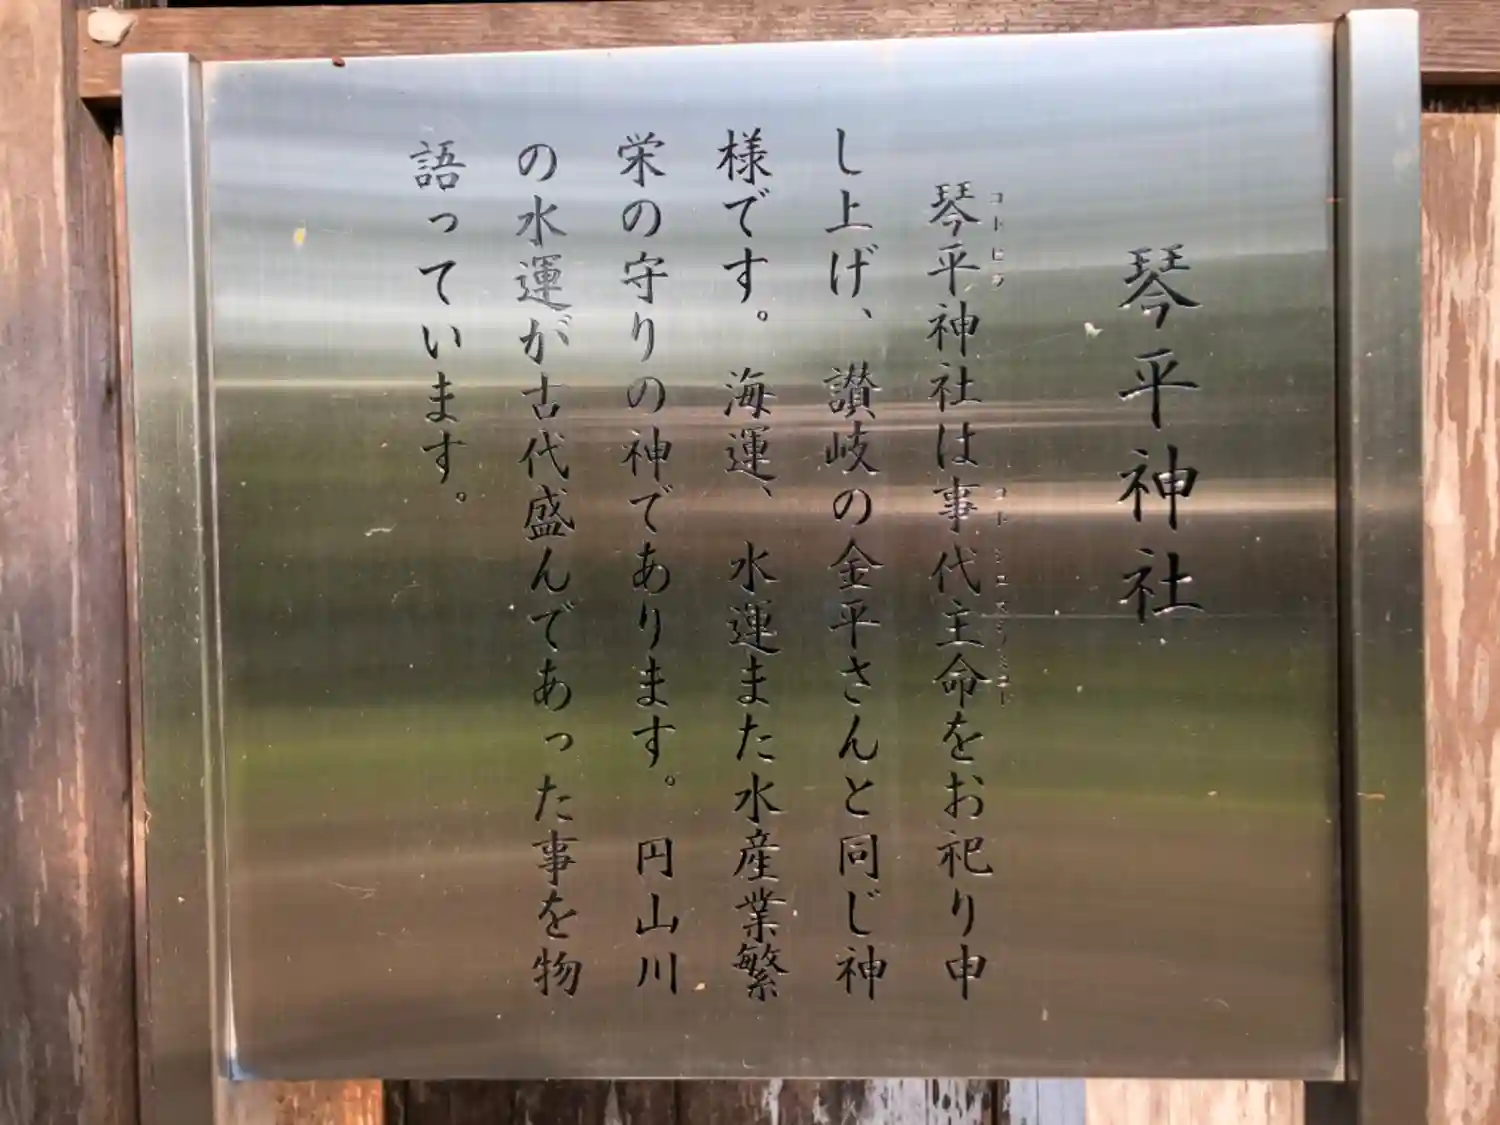 琴平神社
コトヒラ
琴平神社は事代主命をお祀り申
コトシロヌシノミコト
し上げ、讃岐の金平さんと同じ神
様です。海運、水運また水産業繁
栄の守りの神であります。円山川
の水運が古代盛んであった事を物
語っています。